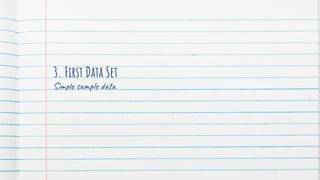 3. First Data Set
Simple sample data